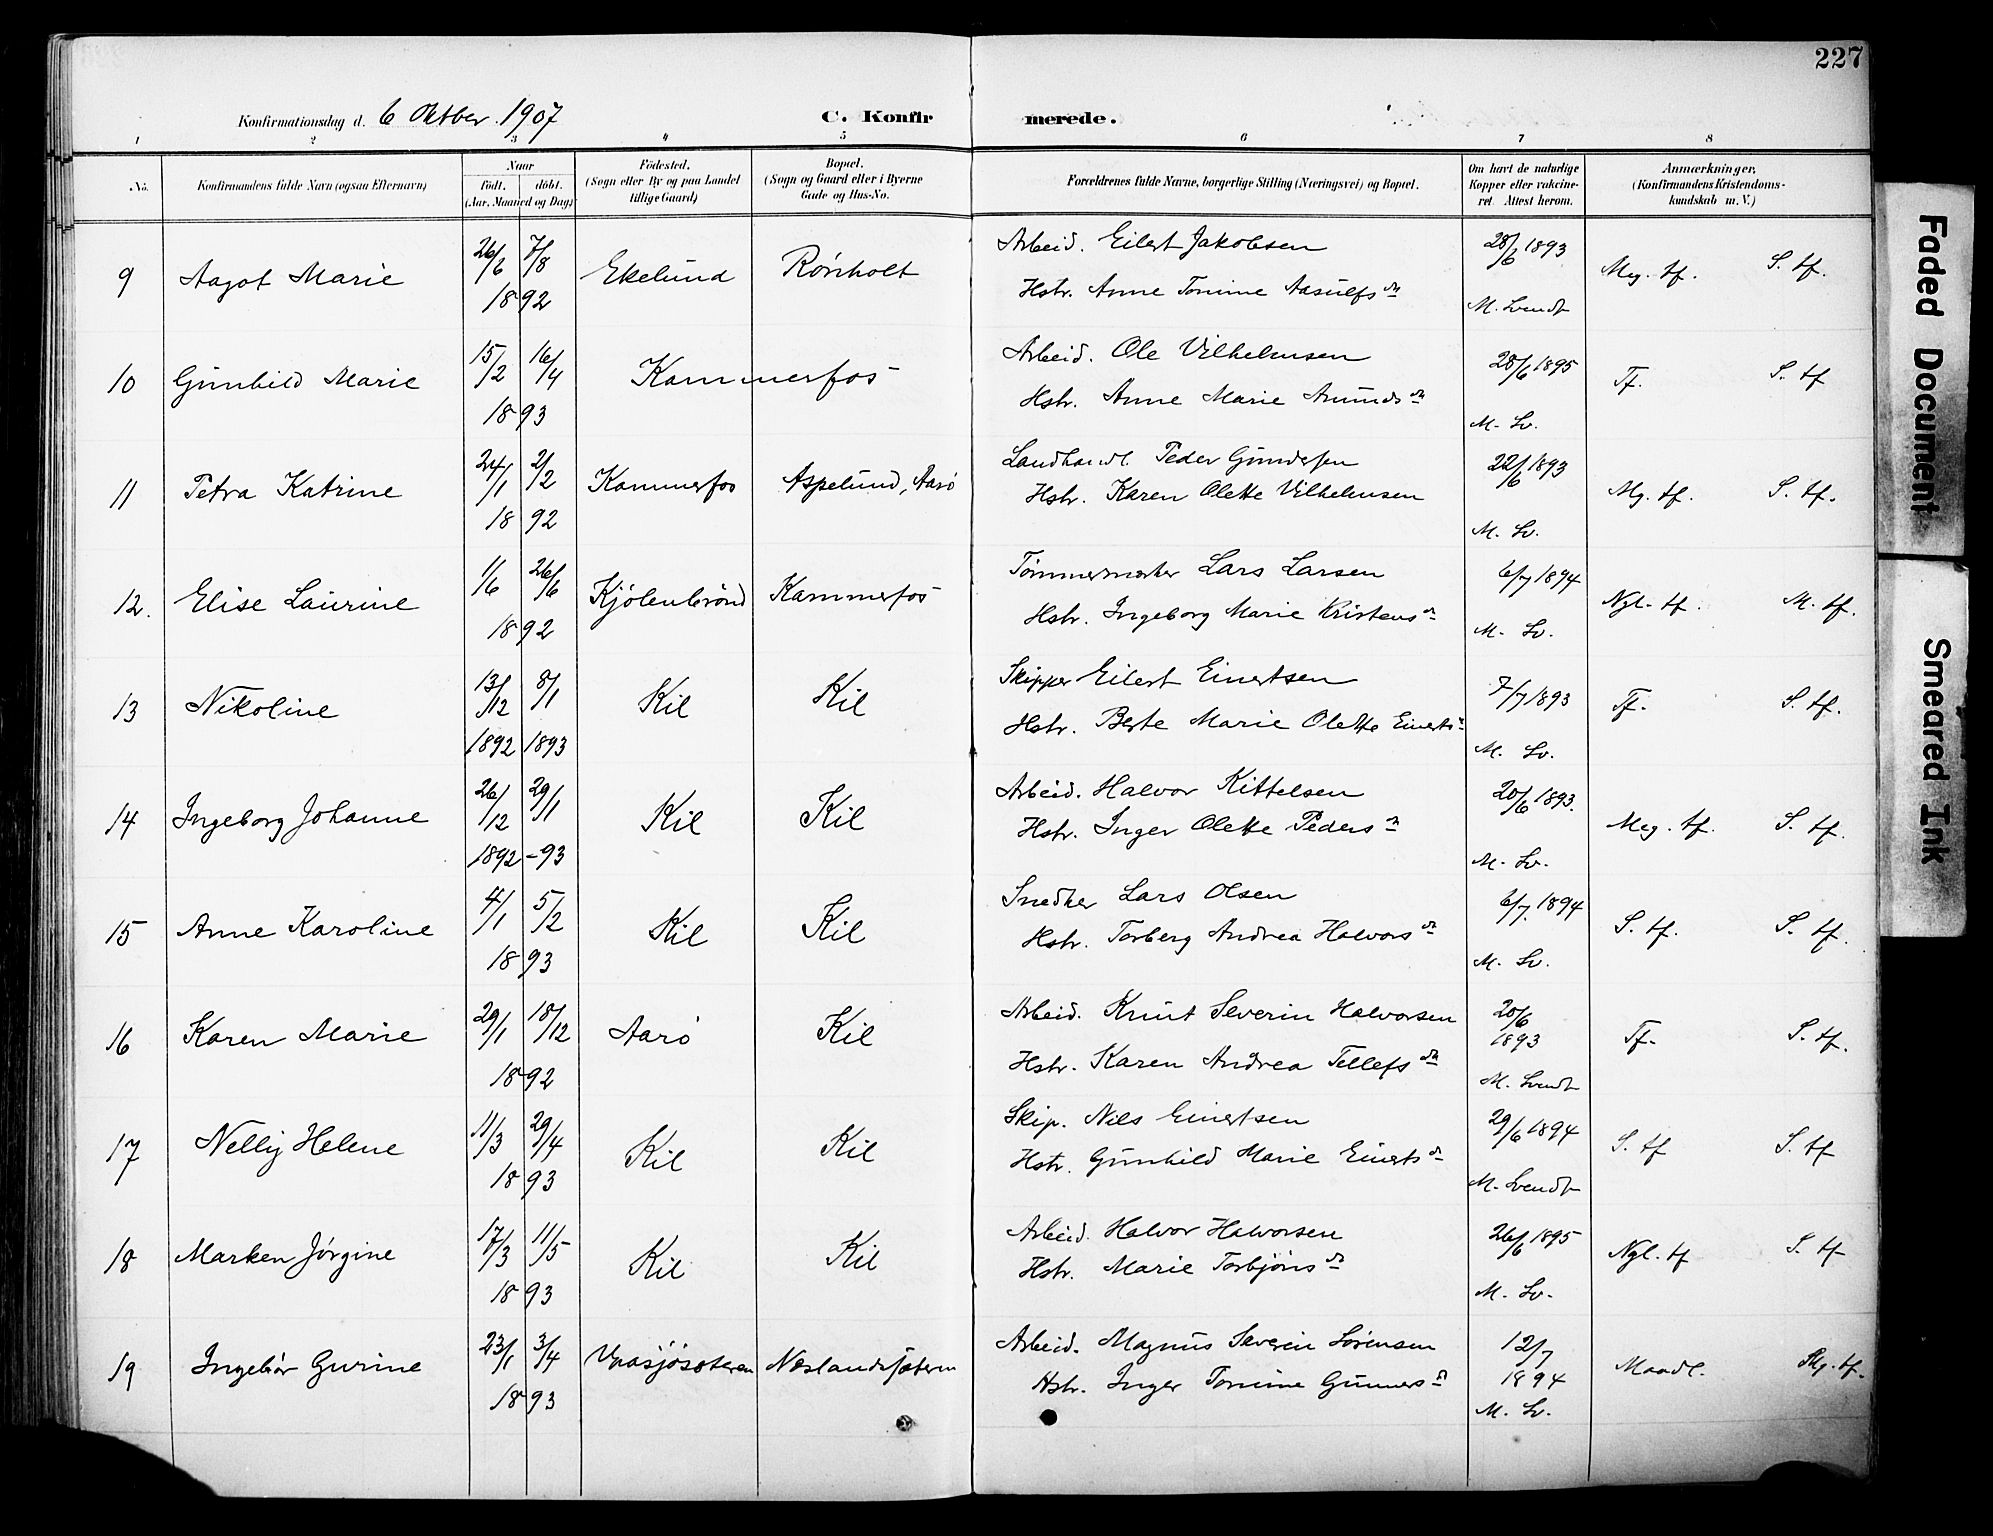 227
Konfirmationsdag d. 6 Oktber. 1907 C. Konfirmerede.
1 2 3 4 5 6 7 8
No. Konfirmandens fulde Navn (ogsaa Efternavn) Naar født. døbt. (Aar, Maaned og Dag) Fødested. (Sogn eller By og paa Landet tillige Gaard) Bopæl. (Sogn og Gaard eller i Byerne Gade og Hus-No. Forældrenes fulde Navne, borgerlige Stilling (Næringsvei) og Bopæl. Om havt de naturlige Kopper eller vakcineret. Attest herom. Anmærkninger. (Konfirmandens Kristendomskundskab m. V.)
9 Aagot Marie 26/6 7/8 1892 Ekelund Rönholt Arbeid. Eilert Jakobsen 28/6 1893 Meg. tf. S. tf.
Hstr. Anne Tomine Aasulfsdn M. Svendt
10 Gunhild Marie 15/2 16/4 1893 Kammerfos Arbeid. Ole Vilhelmsen 28/6 1895 Tf. S. tf
Hstr. Anne Marie Amundsdn M. Sv.
11 Petra Katrine 24/1 2/2 1892 Kammerfos Aspelund, Aarö Landhandl. Peder Gundersen 22/6 1893 Mg. tf. S. tf.
Hstr. Karen Olette Vilhelmsen M. Sv.
12. Elise Laurine 1/6 26/6 1892 Kjölenbrönd Kammerfos Tömmermerker Lars Larsen 6/7 1894 Ngl. tf. M. tf.
Hstr. Ingeborg Marie Kristensdn M. Sv.
13 Nikoline 13/12 8/1 1892 1893 Kil Kil Skipper Eilert Einertsen 7/7 1893 Tf. S. tf.
Hstr. Berte Marie Olette Einertsdn M. Sv.
14 Ingeborg Johanne 26/12 29/1 1892 -93 Kil Kil Arbeid. Halvor Kittelsen 20/6 1893. Meg. tf. S. tf.
Hstr. Inger Olette Pedersdn M. Sv.
15 Anne Karoline 4/1 5/2 1893 Kil Kil Snedker Lars Olsen 6/7. 1894 S. tf. S. tf.
Hstr. Torberg Andrea Halvorsdn M. Sv.
16 Karen Marie 29/1 18/12 1892 Aarö Kil Arbeid. Knut Severin Halvorsen 20/6 1893 Tf. S. tf.
Hstr. Karen Andrea Tellefsdn M. Svendt
17 Nelly Helene 11/3 29/4 1893 Kil Kil Skip. Nils Einertsen 29/6 1894 S. tf S. tf
Hstr. Gunhild Marie Einertsdn M. Svendt
18 Marken Jörgine 17/3 11/5 1893 Kil Kil Arbeid. Halvor Halvorsen 26/6 1895 Ngl. tf S. tf
Hstr. Marie Torbjönsdn M. Sv.
19 Ingebör Gurine 23/1 3/4 1893 Vaasjösæteren Neslandssæteren Arbeid. Magnus Severin Sörensen 12/7 1894 Maadl. Mg. tf.
Hstr. Inger Tomine Gunnersdn M. Sv.
Faded Document
Smeared Ink